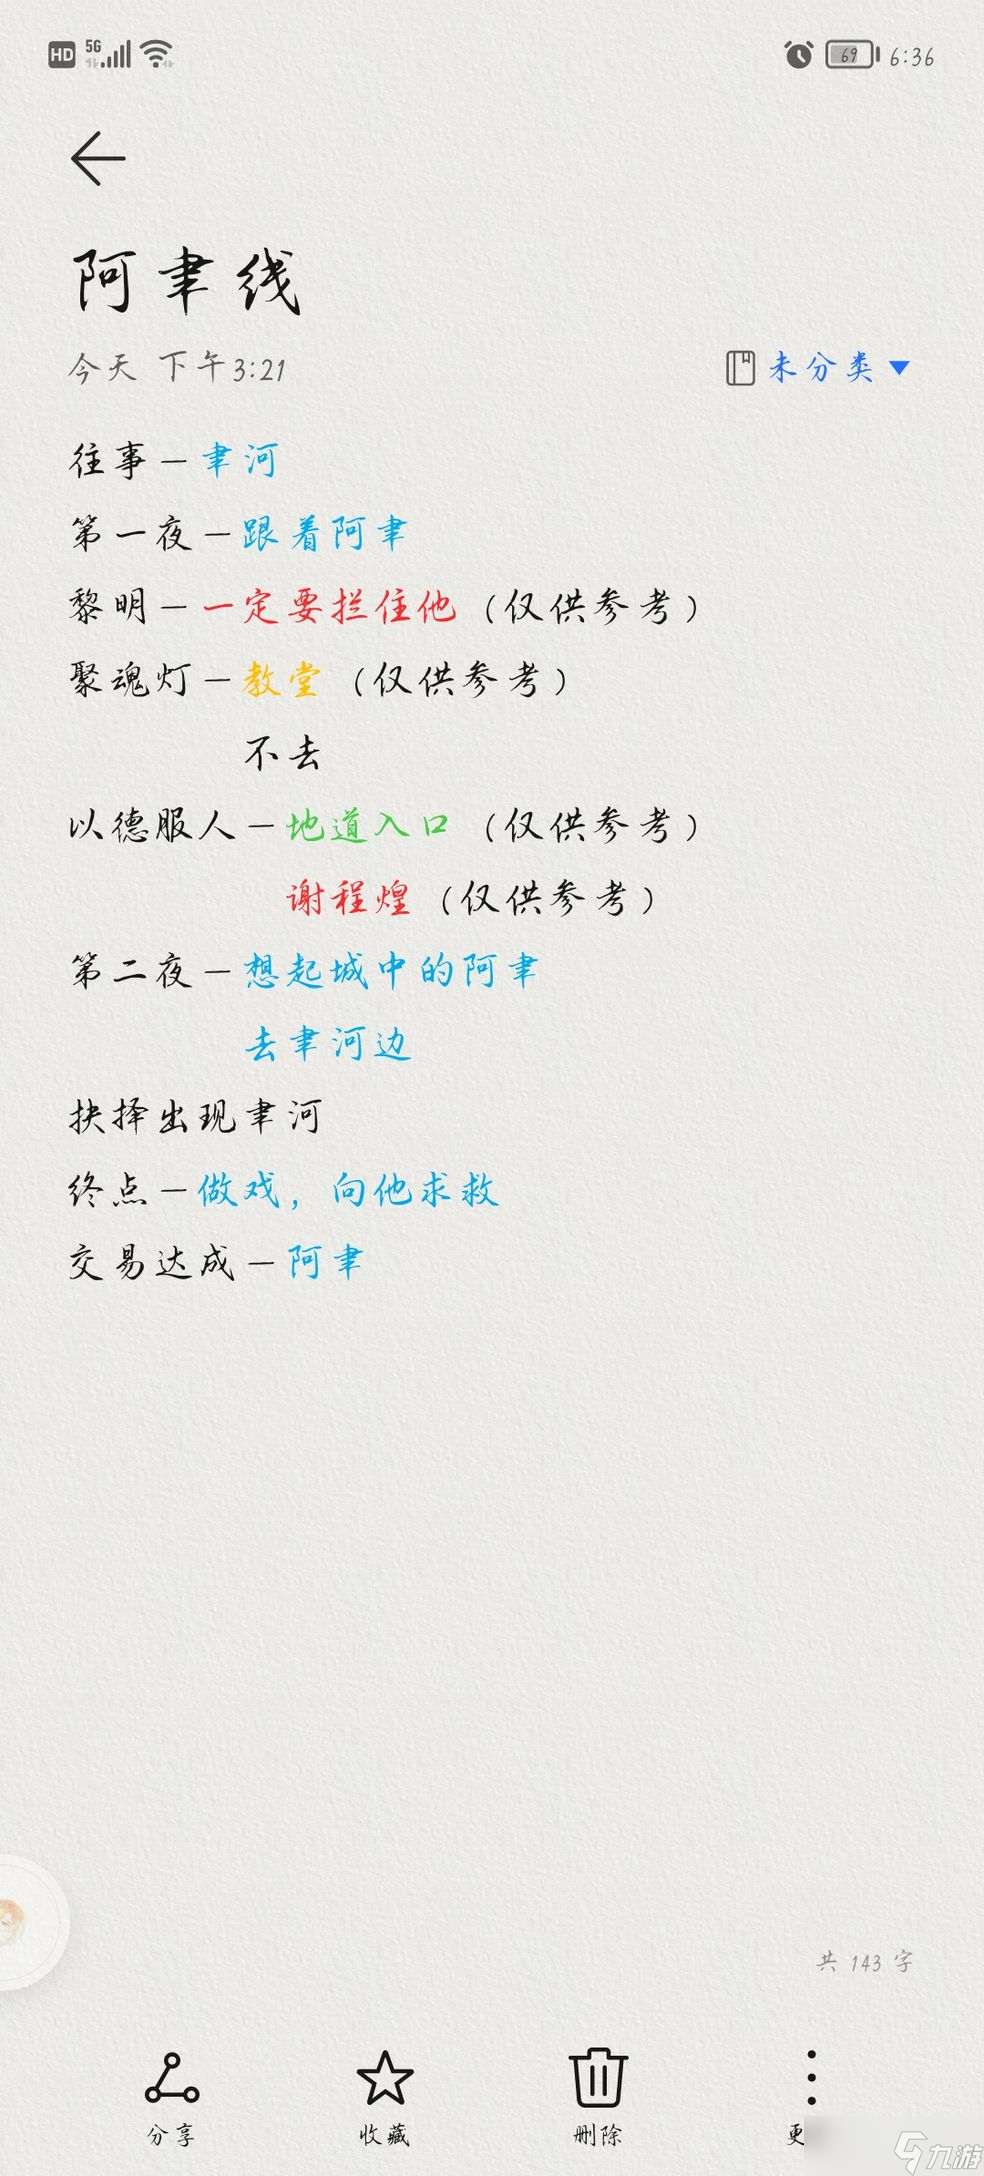 HD 5G 69 6:36
阿聿线
今天 下午3:21 未分类
往事－聿河
第一夜－跟着阿聿
黎明－一定要拦住他（仅供参考）
聚魂灯－教堂（仅供参考）
不去
以德服人－地道入口（仅供参考）
谢程煌（仅供参考）
第二夜－想起城中的阿聿
去聿河边
抉择出现聿河
终点－做戏，向他求救
交易达成－阿聿
共 143 字
分享 收藏 删除 更
九游